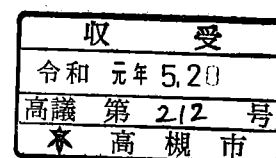 収受
令和 元年 5.20
高議 第 212 号
高槻市